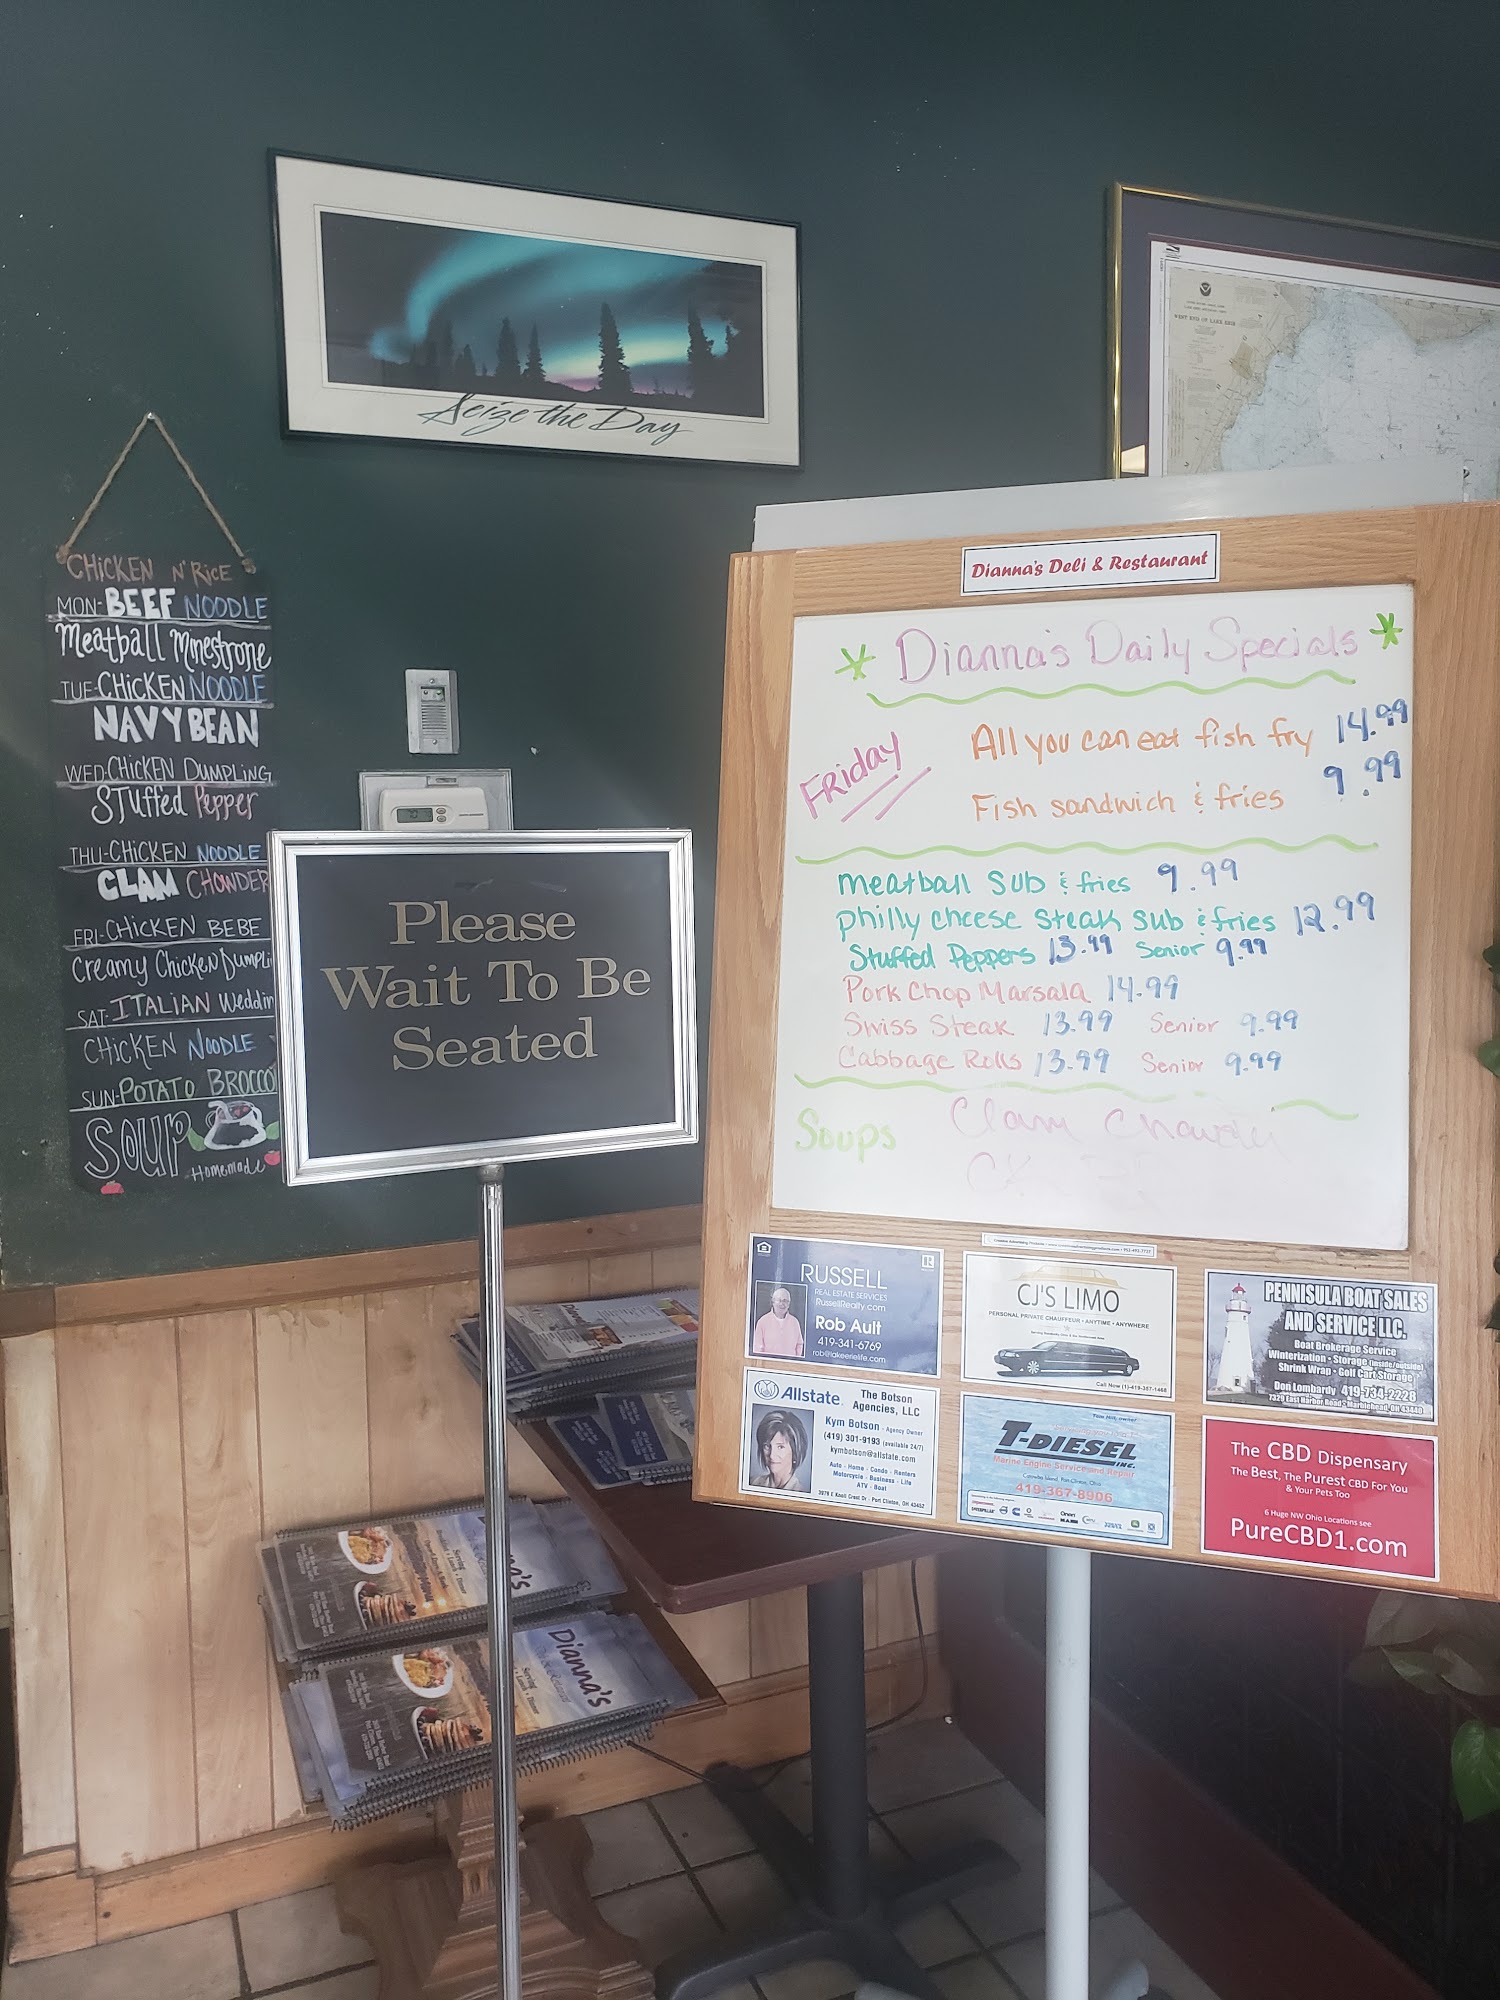 Seize the Day
WEST END OF LAKE ERIE
CHICKEN N' RICE
MON-BEEF NOODLE
Meatball Minestrone
TUE-CHICKEN NOODLE
NAVY BEAN
WED-CHICKEN DUMPLING
STuffed Pepper
THU-CHICKEN NOODLE
CLAM CHOWDER
FRI-CHICKEN BEBE
Creamy Chicken Dumpli
SAT-ITALIAN Weddin
CHICKEN NOODLE
SUN-POTATO BROCCO
SOUP
Homemade
Please
Wait To Be
Seated
Dianna's Deli & Restaurant
* Dianna's Daily Specials *
Friday
All you can eat fish fry 14.99
Fish sandwich & fries 9.99
Meatball Sub & fries 9.99
Philly cheese Steak Sub & fries 12.99
Stuffed Peppers 13.99 Senior 9.99
Pork Chop Marsala 14.99
Swiss Steak 13.99 Senior 9.99
Cabbage Rolls 13.99 Senior 9.99
Soups
Clam
RUSSELL
REAL ESTATE SERVICES
RussellRealty.com
Rob Ault
419-341-6769
rob@lakeerielife.com
CJ'S LIMO
PERSONAL PRIVATE CHAUFFEUR • ANYTIME • ANYWHERE
Call Now (1)-419-357-1468
PENNISULA BOAT SALES
AND SERVICE LLC.
Boat Brokerage Service
Winterization • Storage (inside/outside)
Shrink Wrap • Golf Cart Storage
Don Lombardy 419-734-2228
7329 East Harbor Road • Marblehead, OH 43440
Allstate
The Botson
Agencies, LLC
Kym Botson - Agency Owner
(419) 301-9193 (available 24/7)
kymbotson@allstate.com
Auto - Home - Condo - Renters
Motorcycle - Business - Life
ATV - Boat
3979 E Knoll Crest Dr - Port Clinton, OH 43452
T-DIESEL
INC.
Marine Engine Service and Repair
419-367-8906
The CBD Dispensary
The Best, The Purest CBD For You
& Your Pets Too
6 Huge NW Ohio Locations see
PureCBD1.com
Dianna's
Serving